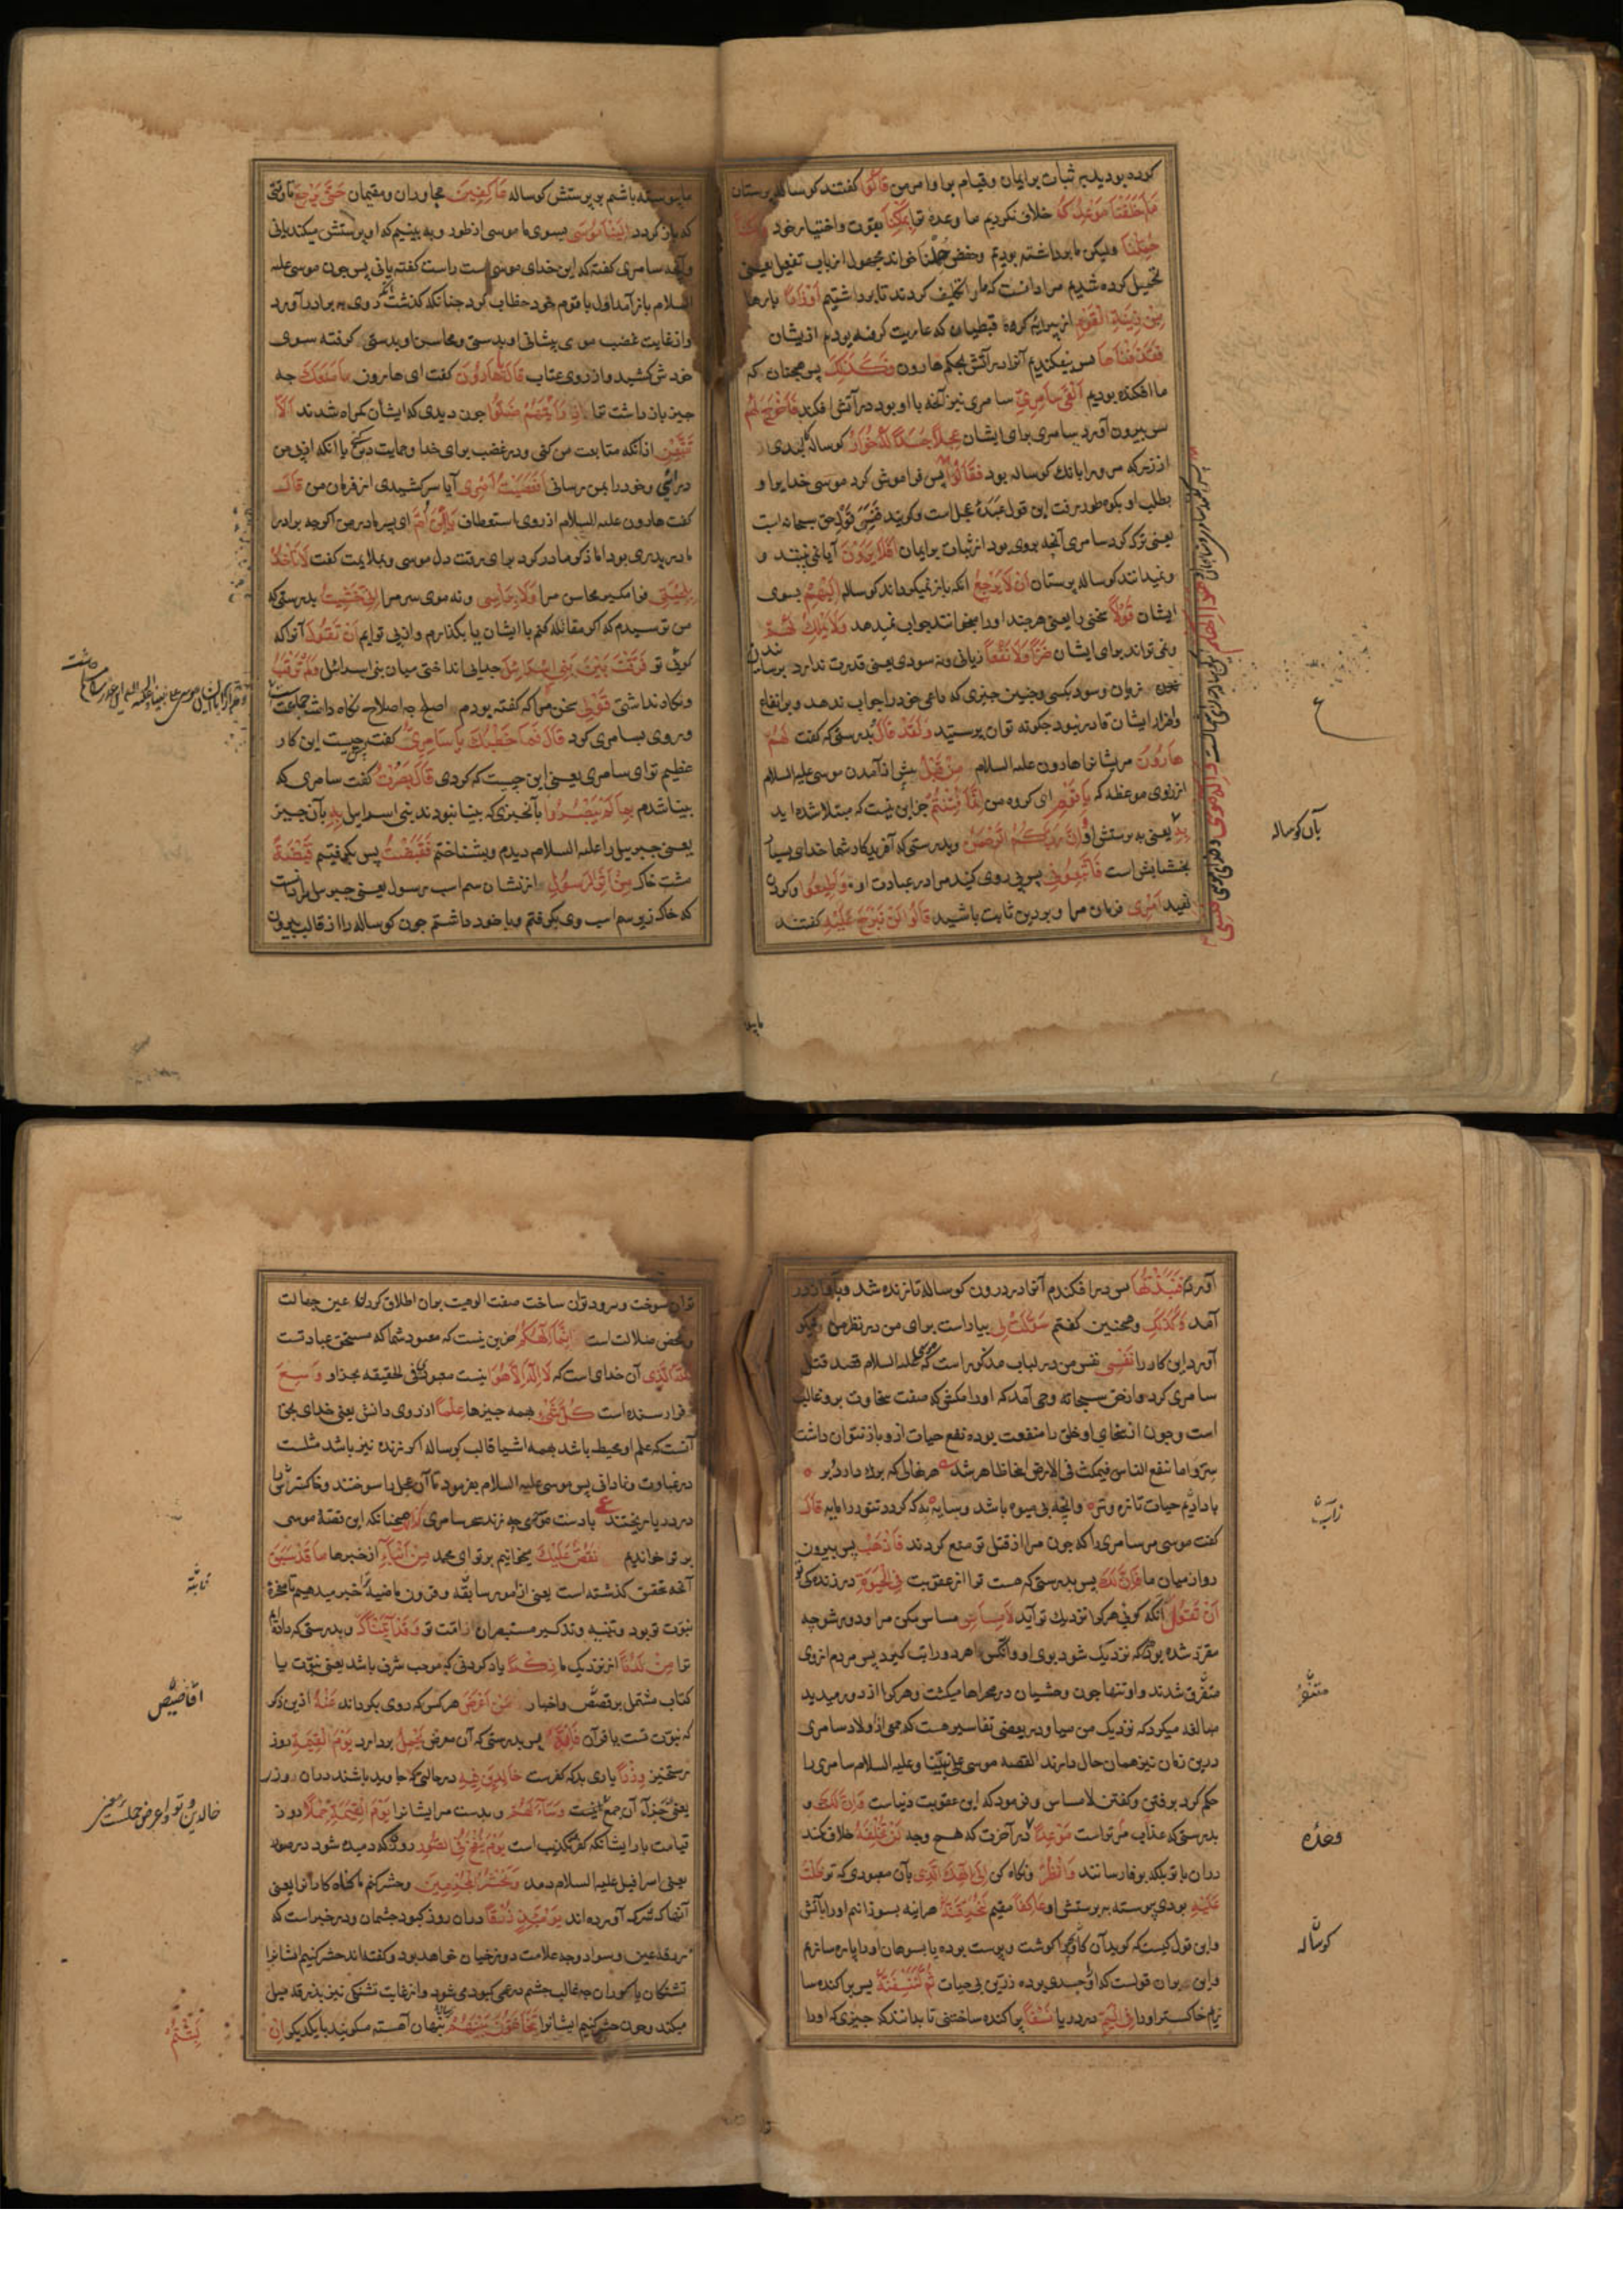 کرده بودید بر ثبات بر ایمان و قیام بر اوامر من قَالُوا کفتند کوساله پرستان
مَا اَخْلَفْنَا مَوْعِدَكَ خلاف نکردیم ما وعدهٔ ترا بِمَلْكِنَا بقوت و اختیار خود وَلٰكِنَّا
حُمِّلْنَا ولیکن ما برداشته بودیم وحفص حُمِّلْنَا خواند مجهول از باب تفعیل یعنی
تحمیل کرده شدیم مراد انست که ما را تکلیف کردند تا برداشتیم اَوْزَارًا بارها
مِنْ زِينَةِ الْقَوْمِ از پیرایهٔ کروه قبطیان که عاریت کرفته بودیم ازیشان
فَقَذَفْنَاهَا پس بیفکندیم آنرا در آتش بحکم هارون فَكَذٰلِكَ پس همچنان که
ما افکنده بودیم اَلْقَى السَّامِرِيُّ سامری نیز آنچه با او بود در آتش افکند فَاَخْرَجَ لَهُمْ
پس بیرون آورد سامری برای ایشان عِجْلًا جَسَدًا لَهُ خُوَارٌ کوساله کالبدی
از زر که مر ورا بانك کوساله بود فَقَالُوا پس فراموش کرد موسی خدایرا و
بطلب او بکوه طور رفت این قول عبدهٔ عجل است وکویند فَنَسِيَ قول حق سبحانه است
یعنی ترک کرد سامری آنچه بروی بود از ثبات بر ایمان اَفَلَا يَرَوْنَ آیا نمی بینند و
ونمیدانند کوساله پرستان اَنْ لَا يَرْجِعُ آنکه باز نمیکرداند کوساله اِلَيْهِمْ بسوی
ایشان قَوْلًا سخنی را یعنی هرچند او را میخوانند جواب نمیدهد وَلَا يَمْلِكُ لَهُمْ
ونمی تواند برای ایشان ضَرًّا وَلَا نَفْعًا زیانی ونه سودی یعنی قدرت ندارد برسانیدن
زیان وسود بکسی وچنین چیزی که داعی خود را جواب ندهد و بر انتفاع
واضرار ایشان قادر نبود چکونه توان پرستید وَلَقَدْ قَالَ بدرستی که کفت لَهُمْ
هَارُونُ مر ایشانرا هارون علیه السلام مِنْ قَبْلُ پیش از آمدن موسی علیه السلام
از روی موعظه که يَا قَوْمِ ای کروه من اِنَّمَا فُتِنْتُمْ جز این نیست که مبتلا شده اید
بِهِ یعنی به پرستش او وَاِنَّ رَبَّكُمُ الرَّحْمٰنُ وبدرستی که آفریدکار شما خدای بسیار
بخشایش است فَاتَّبِعُونِي پس پی روی کنید مرا در عبادت او وَاَطِيعُوا وکردن
نهید اَمْرِي فرمان مرا وبر دین ثابت باشید قَالُوا لَنْ نَبْرَحَ عَلَيْهِ کفتند
بآن کوساله
ما پیو
ما پیوسته باشیم بر پرستش کوساله عَاكِفِينَ مجاوران و مقیمان حَتَّى يَرْجِعَ تا وقتی
که باز کردد اِلَيْنَا مُوسَى بسوی ما موسی از طور و به بینیم که او پرستش میکند یا نی
وآنچه سامری کفته که این خدای موسی است راست کفته یا نی پس چون موسی علیه
السلام باز آمد اول با قوم خود خطاب کرد چنانکه کذشت آنکه روی به برادر آورد
و از غایت غضب موی پیشانی او بدستی و محاسن او بدستی کرفته سوی
خودش کشید و از روی عتاب قَالَ يَا هَارُونُ کفت ای هارون مَا مَنَعَكَ چه
چیز باز داشت ترا اِذْ رَاَيْتَهُمْ ضَلُّوا چون دیدی که ایشان کمراه شدند اَلَّا
تَتَّبِعَنِ از آنکه متابعت من کنی ودر غضب برای خدا وحمایت دین یا آنکه از پی من
در آئی وخود را بمن رسانی اَفَعَصَيْتَ اَمْرِي آیا سر کشیدی از فرمان من قَالَ
کفت هارون علیه السلام از روی استعطاف يَا ابْنَ اُمَّ ای پسر مادر من اکرچه برادر
مادر پدری بود اما ذکر مادر کرد برای رقت دل موسی وبملایمت کفت لَا تَاْخُذْ
بِلِحْيَتِي فرا مکیر محاسن مرا وَلَا بِرَاْسِي ونه موی سر مرا اِنِّي خَشِيتُ بدرستی که
من ترسیدم که اکر مقاتله کنم با ایشان یا بکذارم واز پی تو آیم اَنْ تَقُولَ آنرا که
کوئی تو فَرَّقْتَ بَيْنَ بَنِي اِسْرَائِيلَ جدایی انداختی میان بنی اسرائیل وَلَمْ تَرْقُبْ
ونکاه نداشتی قَوْلِي سخن مرا که کفته بودم اصلح یه اصلاح نکاه داشت جماعت
وروی بسامری کرد قَالَ فَمَا خَطْبُكَ يَا سَامِرِيُّ کفت پس چیست این کار
عظیم ترا ای سامری یعنی این چیست که کردی قَالَ بَصُرْتُ کفت سامری که
بینا شدم بِمَا لَمْ يَبْصُرُوا بآنچیزی که بینا نبودند بنی اسرایل بِهِ بآن چیز
یعنی جبریل را علیه السلام دیدم وبشناختم فَقَبَضْتُ پس بکرفتیم قَبْضَةً
مشت خاک مِنْ اَثَرِ الرَّسُولِ از نشان سم اسب رسول یعنی جبرئیل
که خاک زیر سم اسب وی بکرفتم وبا خود داشتم چون کوساله را از قالب بیرون
آوردم فَنَبَذْتُهَا پس در افکندم آنرا در درون کوساله تا زنده شد وبآواز در
آمد وَكَذٰلِكَ وهمچنین کفتم سَوَّلَتْ لِي بیاراست برای من در نظر من ونیکو
آورد این کار را نَفْسِي نفس من در لباب مذکور است که موسی علیه السلام قصد قتل
سامری کرد و از حق سبحانه وحی آمد که او را مکش که صفت سخاوت برو غالب
است وچون از سخای او خلق را منفعت بوده نفع حیات ازو باز نتوان داشت
سرّ واما ینفع الناس فیمکث فی الارض اینجا ظاهر شد هر نهالی که برك دارد وبر
یا دایم حیات تازه وتر وانچه بی میوه باشد وسایه بد که کردد تنور را مایه قَالَ
کفت موسی مر سامری را که چون مرا از قتل تو منع کردند فَاذْهَبْ پس بیرون
رو از میان ما فَاِنَّ لَكَ پس بدرستی که هست ترا از عقوبت فِي الْحَيٰوةِ در زندکی تو
اَنْ تَقُولَ آنکه کوئی هر کرا نزدیك تو آید لَا مِسَاسَ مساس مکن مرا ودور شو چه
مقرر شده بود که هر که نزدیك شود بوی او وآنکس هر دو را تب کیرد پس مردم از وی
متفرق شدند واو تنها چون وحشیان در صحراها میکشت وهر کرا از دور میدید
مبالغه میکرد که نزدیك من میا ودر بعضی تفاسیر هست که جمعی از اولاد سامری
درین زمان نیز همان حال دارند القصه موسی علی نبینا وعلیه السلام سامری را
حکم کرد برفتن وکفتن لا مساس وفرمود که این عقوبت دنیاست وَاِنَّ لَكَ و
بدرستی که عذاب مر تراست مَوْعِدًا در آخرت که هیچ وجه لَنْ تُخْلَفَهُ خلاف نکند
دران با تو بلکه بوفا رسانند وَانْظُرْ ونکاه کن اِلٰى اِلٰهِكَ الَّذِي بآن معبودی که تو ظَلْتَ
عَلَيْهِ بودی پیوسته بر پرستش او عَاكِفًا مقیم لَنُحَرِّقَنَّهُ هراینه بسوزانیم او را بآتش
واین قول کیست که کوید آن کاو را کوشت وپوست بوده یا بسوهان او را پاره سازیم
واین بران قولست که او جسدی بوده زرین بی حیات ثُمَّ لَنَنْسِفَنَّهُ پس پراکنده سا
زیم خاکستر او را فِي الْيَمِّ در دریا نَسْفًا پراکنده ساختنی تا بدانند که چیزی که او را
متنفر
وعده
کوساله
توان سوخت ودر رود توان ساخت صفت الوهیت بران اطلاق کردن عین جهالت
ومحض ضلالت است اِنَّمَا اِلٰهُكُمُ جزین نیست که معبود شما که مستحق عبادتست
اللّٰهُ الَّذِي آن خدای است که لَا اِلٰهَ اِلَّا هُوَ نیست معبودی فی الحقیقه بجز او وَسِعَ
فرا رسنده است كُلَّ شَيْءٍ بهمه چیزها عِلْمًا از روی دانش یعنی خدای بحق
آنست که علم او محیط باشد بهمه اشیا قالب کوساله اکر زنده نیز باشد مثلست
در غباوت ونادانی پس موسی علیه السلام بفرمود تا آن عجل را سوختند وخاکستر آنرا
در دریا ریختند با دست موسی چه زند سحر سامری كَذٰلِكَ همچنانکه این قصهٔ موسی
بر تو خواندیم نَقُصُّ عَلَيْكَ میخوانیم بر تو ای محمد مِنْ اَنْبَاءِ از خبرها مَا قَدْ سَبَقَ
آنچه بتحقیق کذشته است یعنی از امور سابقه وقرون ماضیه ترا خبر میدهیم تا معجزهٔ
نبوت تو بود وتنبیه وتذکیر مستبصران از امت تو وَقَدْ اٰتَيْنَاكَ وبدرستی که دادیم
ترا مِنْ لَدُنَّا از نزدیك ما ذِكْرًا یاد کردنی که موجب شرف باشد یعنی نبوت یا
کتاب مشتمل بر قصص واخبار مَنْ اَعْرَضَ هر کس که روی بکرداند عَنْهُ ازین ذکر
که نبوت تست یا قرآن فَاِنَّهُ پس بدرستی که آن معرض يَحْمِلُ بردارد يَوْمَ الْقِيٰمَةِ روز
رستخیز وِزْرًا باری بد که کفرست خَالِدِينَ فِيهِ در حالتی که جاوید باشند دران وزر
یعنی جزاء آن وَسَاءَ لَهُمْ وبدست مر ایشانرا يَوْمَ الْقِيٰمَةِ حِمْلًا روز
قیامت بار ایشانکه کفر وتکذیب است يَوْمَ يُنْفَخُ فِي الصُّورِ روزی که دمیده شود در صور
یعنی اسرافیل علیه السلام دمد وَنَحْشُرُ الْمُجْرِمِينَ وحشر کنیم ما کناه کارانرا یعنی
آنها که شرک آورده اند يَوْمَئِذٍ زُرْقًا دران روز کبود چشمان ودر خبر است که
زرقهٔ عین وسواد وجه علامت دوزخیان خواهد بود وکفته اند حشر کنیم ایشانرا
تشنکان یا کوران چه غالب چشم در عمی کبود می شود واز غایت تشنکی نیز بزرقه میل
میکند وچون حشر کنیم ایشانرا يَتَخَافَتُونَ بَيْنَهُمْ پنهان آهسته میکویند با یکدیکر اِنْ
اقاصیص
لَبِثْتُمْ